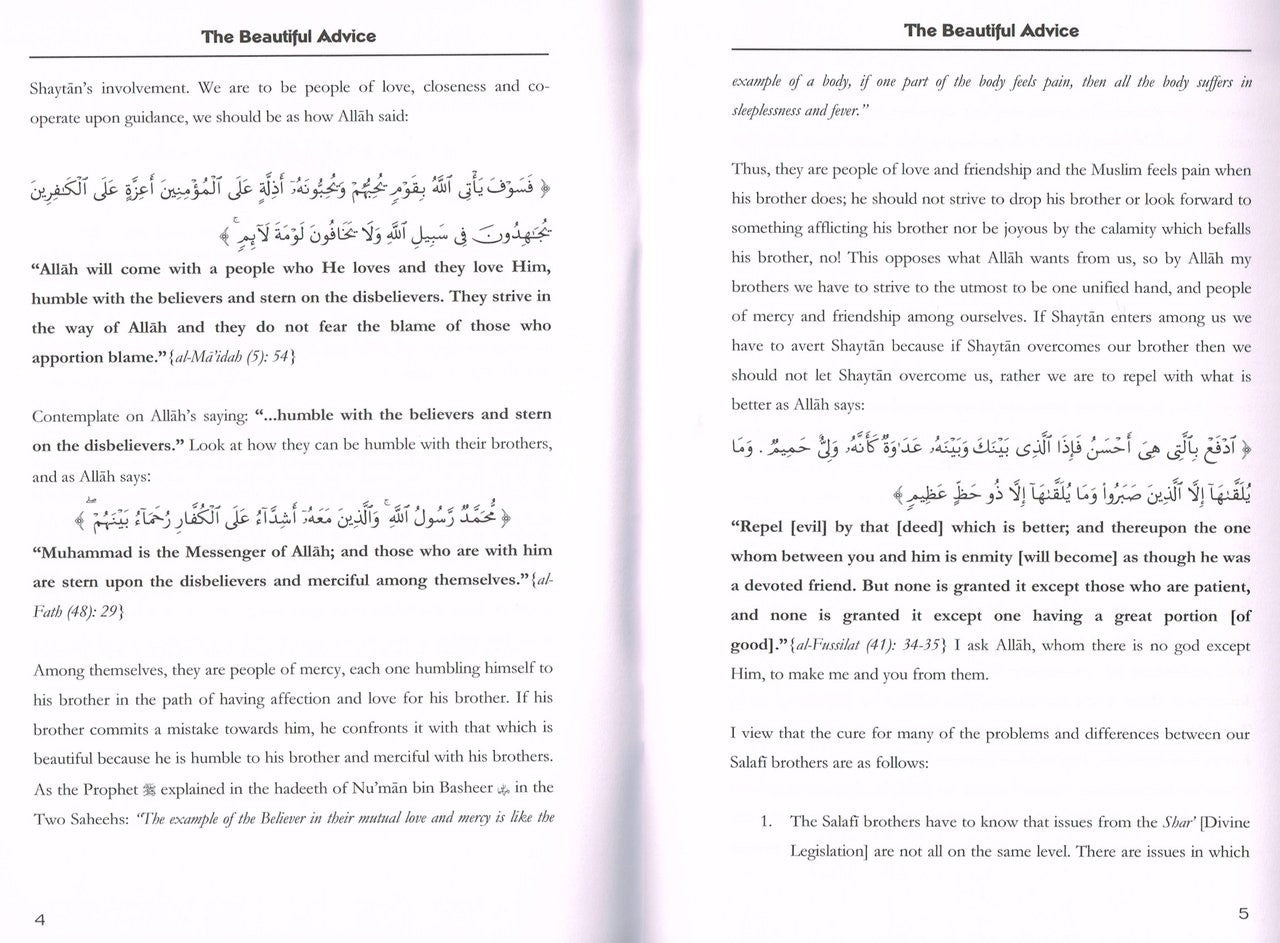 The Beautiful Advice
Shaytān's involvement. We are to be people of love, closeness and co-
operate upon guidance, we should be as how Allāh said:
﴿ فَسَوْفَ يَأْتِى ٱللَّهُ بِقَوْمٍ يُحِبُّهُمْ وَيُحِبُّونَهُۥٓ أَذِلَّةٍ عَلَى ٱلْمُؤْمِنِينَ أَعِزَّةٍ عَلَى ٱلْكَٰفِرِينَ
يُجَٰهِدُونَ فِى سَبِيلِ ٱللَّهِ وَلَا يَخَافُونَ لَوْمَةَ لَآئِمٍ ۚ ﴾
“Allāh will come with a people who He loves and they love Him,
humble with the believers and stern on the disbelievers. They strive in
the way of Allāh and they do not fear the blame of those who
apportion blame.” {al-Mā’idah (5): 54}
Contemplate on Allāh's saying: “...humble with the believers and stern
on the disbelievers.” Look at how they can be humble with their brothers,
and as Allāh says:
﴿ مُّحَمَّدٌ رَّسُولُ ٱللَّهِ ۚ وَٱلَّذِينَ مَعَهُۥٓ أَشِدَّآءُ عَلَى ٱلْكُفَّارِ رُحَمَآءُ بَيْنَهُمْ ۖ ﴾
“Muhammad is the Messenger of Allāh; and those who are with him
are stern upon the disbelievers and merciful among themselves.” {al-
Fath (48): 29}
Among themselves, they are people of mercy, each one humbling himself to
his brother in the path of having affection and love for his brother. If his
brother commits a mistake towards him, he confronts it with that which is
beautiful because he is humble to his brother and merciful with his brothers.
As the Prophet ﷺ explained in the hadeeth of Nu’mān bin Basheer in the
Two Saheehs: “The example of the Believer in their mutual love and mercy is like the
4
The Beautiful Advice
example of a body, if one part of the body feels pain, then all the body suffers in
sleeplessness and fever.”
Thus, they are people of love and friendship and the Muslim feels pain when
his brother does; he should not strive to drop his brother or look forward to
something afflicting his brother nor be joyous by the calamity which befalls
his brother, no! This opposes what Allāh wants from us, so by Allāh my
brothers we have to strive to the utmost to be one unified hand, and people
of mercy and friendship among ourselves. If Shaytān enters among us we
have to avert Shaytān because if Shaytān overcomes our brother then we
should not let Shaytān overcome us, rather we are to repel with what is
better as Allāh says:
﴿ ٱدْفَعْ بِٱلَّتِى هِىَ أَحْسَنُ فَإِذَا ٱلَّذِى بَيْنَكَ وَبَيْنَهُۥ عَدَٰوَةٌ كَأَنَّهُۥ وَلِىٌّ حَمِيمٌ . وَمَا
يُلَقَّىٰهَآ إِلَّا ٱلَّذِينَ صَبَرُوا۟ وَمَا يُلَقَّىٰهَآ إِلَّا ذُو حَظٍّ عَظِيمٍ ﴾
“Repel [evil] by that [deed] which is better; and thereupon the one
whom between you and him is enmity [will become] as though he was
a devoted friend. But none is granted it except those who are patient,
and none is granted it except one having a great portion [of
good].” {al-Fussilat (41): 34-35} I ask Allāh, whom there is no god except
Him, to make me and you from them.
I view that the cure for many of the problems and differences between our
Salafī brothers are as follows:
1. The Salafī brothers have to know that issues from the Shar’ [Divine
Legislation] are not all on the same level. There are issues in which
5